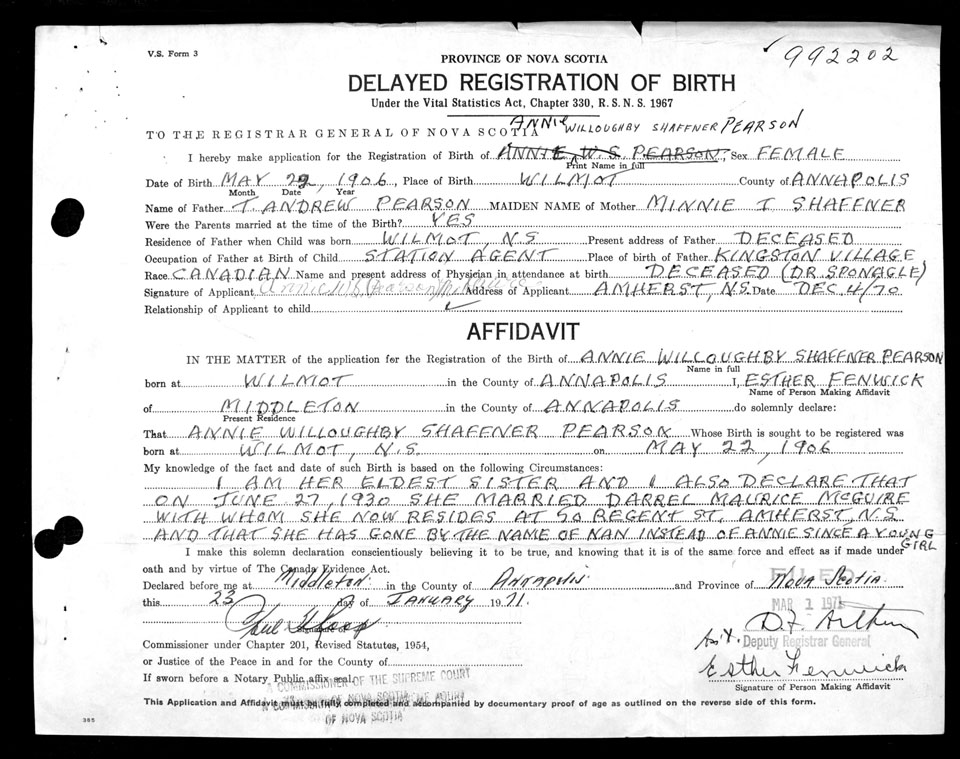 V.S. Form 3
992202
PROVINCE OF NOVA SCOTIA
DELAYED REGISTRATION OF BIRTH
Under the Vital Statistics Act, Chapter 330, R. S. N. S. 1967
ANNIE WILLOUGHBY SHAFFNER PEARSON
TO THE REGISTRAR GENERAL OF NOVA SCOTIA
I hereby make application for the Registration of Birth of ANNIE W. S. PEARSON, Sex FEMALE
Print Name in full
Date of Birth MAY 22, 1906, Place of Birth WILMOT County of ANNAPOLIS
Month Date Year
Name of Father T. ANDREW PEARSON MAIDEN NAME of Mother MINNIE T SHAFFNER
Were the Parents married at the time of the Birth? YES
Residence of Father when Child was born WILMOT, N.S Present address of Father DECEASED
Occupation of Father at Birth of Child STATION AGENT Place of birth of Father KINGSTON VILLAGE
Race CANADIAN Name and present address of Physician in attendance at birth DECEASED (DR. SPONAGLE)
Signature of Applicant Annie W S (Pearson) McGuire Address of Applicant AMHERST, N.S. Date DEC. 4/70
Relationship of Applicant to child
AFFIDAVIT
IN THE MATTER of the application for the Registration of the Birth of ANNIE WILLOUGHBY SHAFFNER PEARSON
Name in full
born at WILMOT in the County of ANNAPOLIS I, ESTHER FENWICK
Name of Person Making Affidavit
of MIDDLETON in the County of ANNAPOLIS do solemnly declare:
Present Residence
That ANNIE WILLOUGHBY SHAFFNER PEARSON Whose Birth is sought to be registered was
born at WILMOT, N.S. on MAY 22, 1906
My knowledge of the fact and date of such Birth is based on the following Circumstances:
I AM HER ELDEST SISTER AND I ALSO DECLARE THAT
ON JUNE 27, 1930 SHE MARRIED DARREL MAURICE McGUIRE
WITH WHOM SHE NOW RESIDES AT 50 REGENT ST. AMHERST, N.S
AND THAT SHE HAS GONE BY THE NAME OF NAN INSTEAD OF ANNIE SINCE A YOUNG
GIRL
I make this solemn declaration conscientiously believing it to be true, and knowing that it is of the same force and effect as if made under
oath and by virtue of The Canada Evidence Act.
FILED
Declared before me at Middleton in the County of Annapolis and Province of Nova Scotia
this 23 day of JANUARY 1971.
MAR 1 1971
Commissioner under Chapter 201, Revised Statutes, 1954,
Ass't. Deputy Registrar General
or Justice of the Peace in and for the County of
Esther Fenwick
If sworn before a Notary Public affix seal.
Signature of Person Making Affidavit
A COMMISSIONER OF THE SUPREME COURT
OF NOVA SCOTIA
This Application and Affidavit must be fully completed and accompanied by documentary proof of age as outlined on the reverse side of this form.
OF NOVA SCOTIA
385